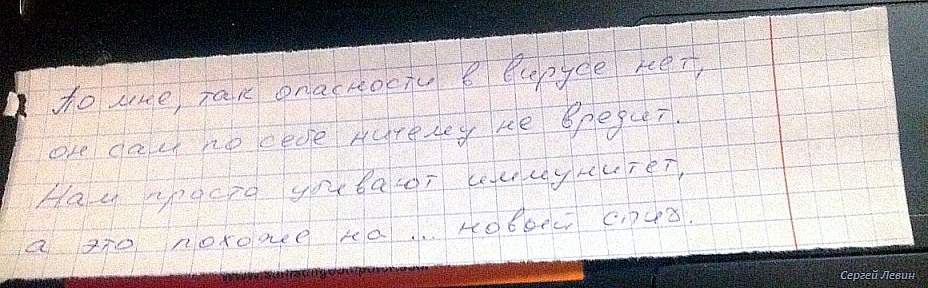 По мне, так опасности в вирусе нет,
он сам по себе ничему не вредит.
Нам просто убивают иммунитет,
а это похоже на ... новый спид.
Сергей Левин